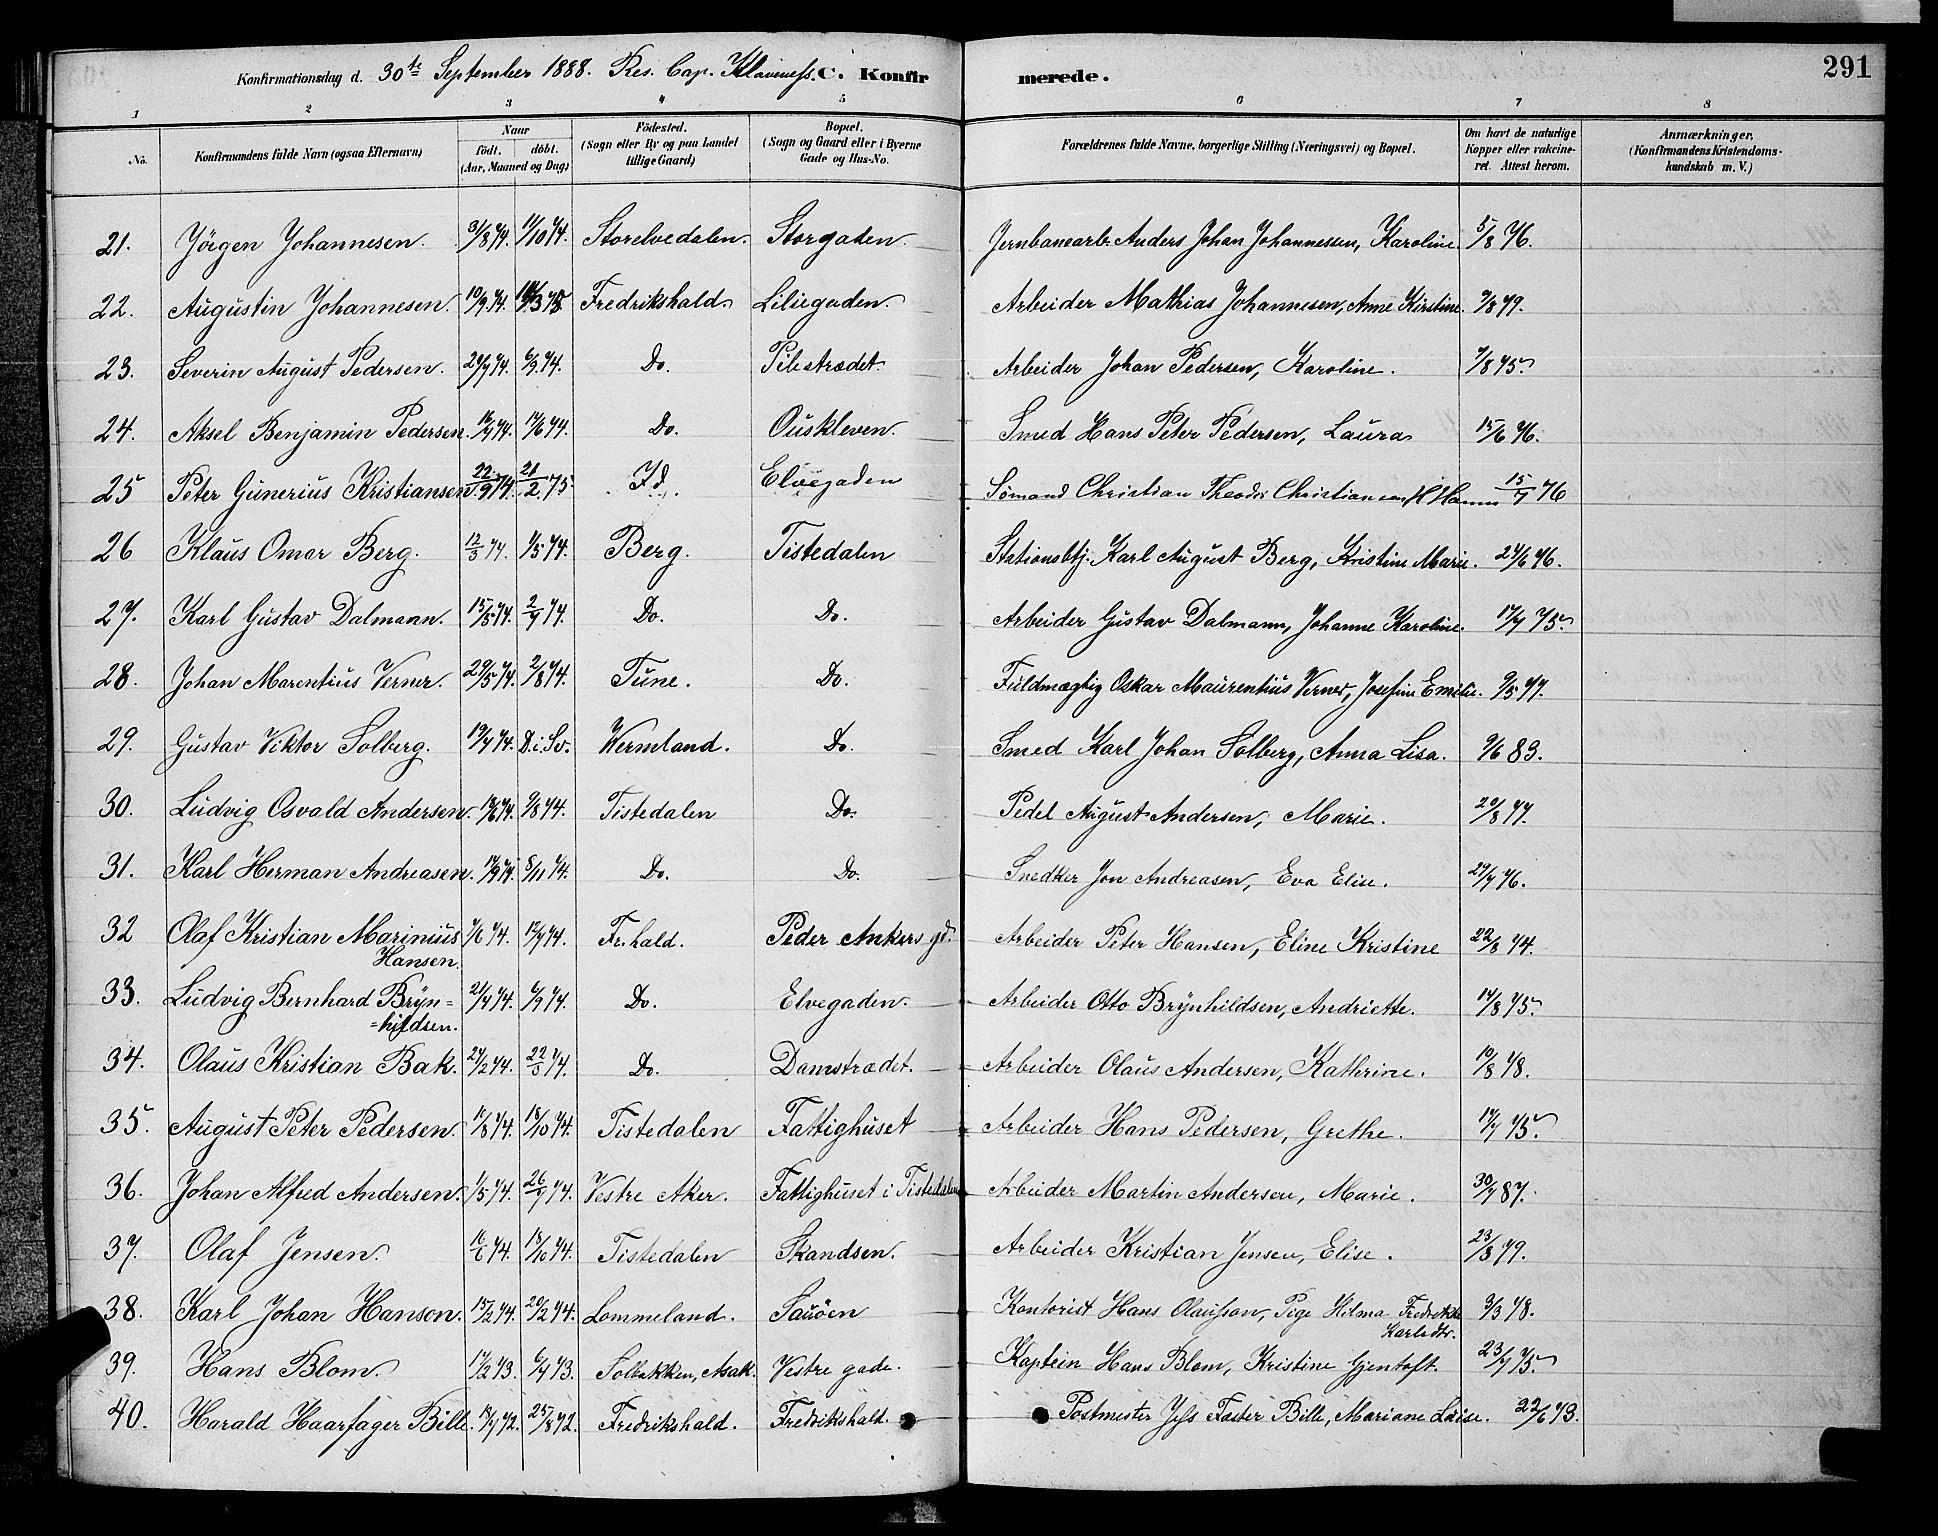 291
Konfirmationsdag d. 30te September 1888. Res. Cap. Klaveness. C. Konfirmerede.
1 2 3 4 5 6 7 8
No. Konfirmandens fulde Navn (ogsaa Efternavn) Naar född. döbt. (Aar, Maaned og Dag) Födested. (Sogn eller By og paa Landet tillige Gaard) Bopæl. (Sogn og Gaard eller i Byerne Gade og Hus-No. Forældrenes fulde Navne, borgerlige Stilling (Næringsvei) og Bopæl. Om havt de naturlige Kopper eller vakcineret. Attest herom. Anmærkninger. (Konfirmandens Kristendomskundskab m. V.)
21. Jörgen Johannesen. 3/8 74. 11/10 74. Storelvedalen. Storgaden. Jernbanearb. Anders Johan Johannessen, Karoline. 5/8 76.
22. Augustin Johannesen. 10/9 74. Fredrikshald. Liliegaden. Arbeider Mathias Johannesen, Anne Kirstine. 9/8 79.
23. Severin August Pedersen. 24/7 74. 6/9 74. Do. Pilestrædet. Arbeider Johan Pedersen, Karoline. 7/8 75.
24. Aksel Benjamin Pedersen. 16/4 74. 14/6 74. Do. Ouskleven. Smed Hans Peter Pedersen, Laura 15/6 76.
25 Peter Gunerius Kristiansen 22/9 74. 21/2 75 Id. Elvegaden Sömand Christian Theodor Christiansen, 15/7 76
26 Klaus Omar Berg. 12/3 74. 1/5 74. Berg. Tistedalen Stationsbtj. Karl August Berg, Kristine Marie. 24/6 76.
27. Karl Gustav Dalmann. 15/5 74. 2/7 74. Do. Do. Arbeider Gustav Dalmann, Johanne Karoline. 17/7 75.
28. Johan Marentius Verner. 29/5 74. 2/8 74. Tune. Do. Fuldmægtig Oskar Maurentius Verner, Josefine Emilie. 9/5 77.
29. Gustav Viktor Solberg. 19/7 74. D. i. Sv. Wermland. Do. Smed Karl Johan Solberg, Anna Lisa. 9/6 83.
30. Ludvig Osvald Andersen. 18/6 74. 9/8 74. Tistedalen Do. Pedel August Andersen, Marie. 20/8 77.
31. Karl Herman Andreasen. 17/9 74. 8/11 74. Do. Do. Snedker Jon Andreasen, Eva Elise. 29/7 76.
32 Olaf Kristian Marinius Hansen. 7/6 74. 12/7 74. Fr.hald. Peder Ankers gd. Arbeider Peter Hansen, Eline Kristine 22/8 74.
33. Ludvig Bernhard Bryn=
=hildsen. 21/7 74. 6/9 74. Do. Elvegaden. Arbeider Otto Brynhildsen, Andriette. 14/8 75.
34. Olaus Kristian Bak. 24/2 74. 22/3 74. Do. Damstrædet. Arbeider Olaus Andersen, Kathrine. 10/8 78.
35. August Peter Pedersen. 16/8 74. 18/10 74. Tistedalen Fattighuset Arbeider Hans Pedersen, Grethe. 17/7 75.
36. Johan Alfred Andersen. 1/5 74. 26/7 74. Vestre Aker. Fattighuset i Tistedalen Arbeider Martin Andersen, Marie. 30/7 87.
37. Olaf Jensen. 16/6 74. 18/10 74. Tistedalen Skandsen. Arbeider Kristian Jensen, Elise. 23/8 79.
38. Karl Johan Hanson. 15/2 74. 20/2 74. Lommeland. Sauöen Kontorist Hans Olausson, Pige Hilma Fredrikke Karlsdtr. 3/3 78.
39. Hans Blom. 17/2 73. 6/4 73. Solbakken, Asak. Vestre gade. Kaptein Hans Blom, Kristine Gjentoft. 23/7 75.
40. Harald Haarfager Bille. 17/7 72. 25/8 72. Fredrikshald. Fredrikshald. Postmester Jess Faster Bille, Mariane Luise. 22/6 73.